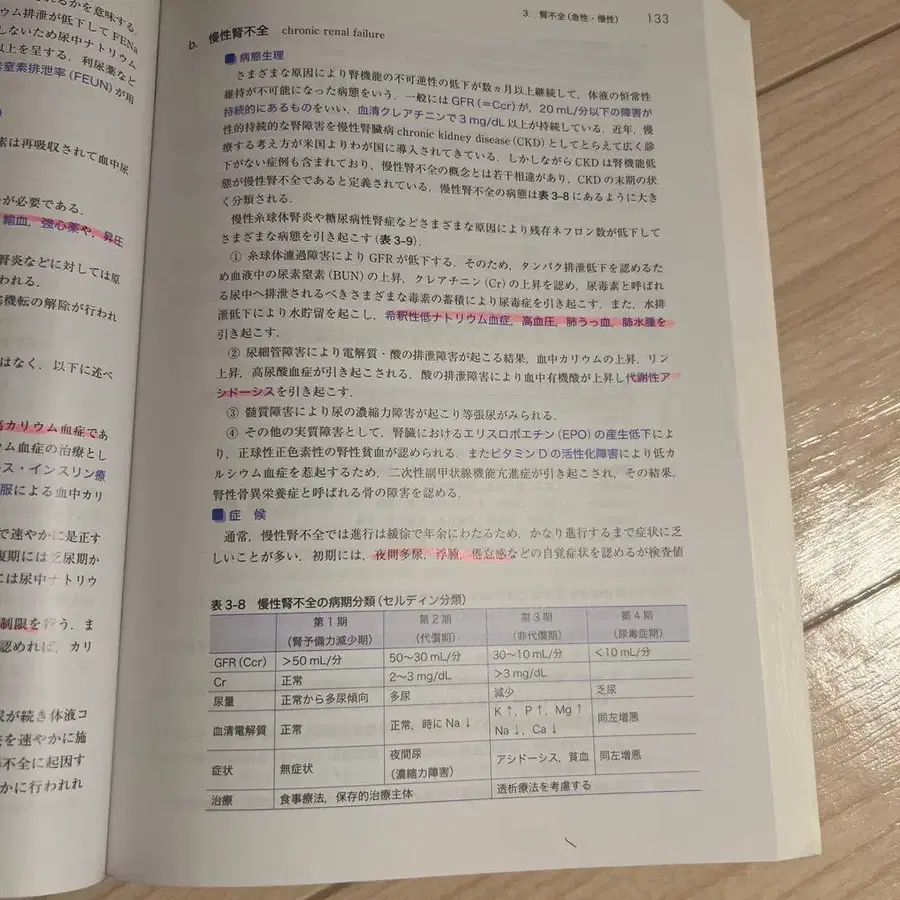 れるかを意味する.
ウム排泄が低下して FENa
しないため尿中ナトリウム
以上を呈する. 利尿薬など
窒素排泄率 (FEUN) が用
素は再吸収されて血中尿
が必要である.
輸血, 強心薬や, 昇圧
腎炎などに対しては原
われる.
機転の解除が行われ
はなく, 以下に述べ
高カリウム血症であ
ウム血症の治療とし
ース・インスリン療
服による血中カリ
で速やかに是正す
復期には乏尿期か
には尿中ナトリウ
制限を行う. ま
認めれば, カリ
尿が続き体液コ
を速やかに施
不全に起因す
かに行われれ
3. 腎不全 (急性・慢性) 133
b. 慢性腎不全 chronic renal failure
病態生理
さまざまな原因により腎機能の不可逆性の低下が数ヵ月以上継続して, 体液の恒常性
維持が不可能になった病態をいう. 一般には GFR (=Ccr) が, 20 mL/分以下の障害が
持続的にあるものをいい, 血清クレアチニンで 3 mg/dL 以上が持続している. 近年, 慢
性的持続的な腎障害を慢性腎臓病 chronic kidney disease (CKD) としてとらえて広く診
療する考え方が米国よりわが国に導入されてきている. しかしながら CKD は腎機能低
下がない症例も含まれており, 慢性腎不全の概念とは若干相違があり, CKD の末期の状
態が慢性腎不全であると定義されている. 慢性腎不全の病態は表 3-8 にあるように大き
く分類される.
慢性糸球体腎炎や糖尿病性腎症などさまざまな原因により残存ネフロン数が低下して
さまざまな病態を引き起こす (表 3-9).
① 糸球体濾過障害により GFR が低下する. そのため, タンパク排泄低下を認めるた
め血液中の尿素窒素 (BUN) の上昇, クレアチニン (Cr) の上昇を認め, 尿毒素と呼ばれ
る尿中へ排泄されるべきさまざまな毒素の蓄積により尿毒症を引き起こす. また, 水排
泄低下により水貯留を起こし, 希釈性低ナトリウム血症, 高血圧, 肺うっ血, 肺水腫を
引き起こす.
② 尿細管障害により電解質・酸の排泄障害が起こる結果, 血中カリウムの上昇, リン
上昇, 高尿酸血症が引き起こされる. 酸の排泄障害により血中有機酸が上昇し代謝性ア
シドーシスを引き起こす.
③ 髄質障害により尿の濃縮力障害が起こり等張尿がみられる.
④ その他の実質障害として, 腎臓におけるエリスロポエチン (EPO) の産生低下によ
り, 正球性正色素性の腎性貧血が認められる. またビタミン D の活性化障害により低カ
ルシウム血症を惹起するため, 二次性副甲状腺機能亢進症が引き起こされ, その結果,
腎性骨異栄養症と呼ばれる骨の障害を認める.
症 候
通常, 慢性腎不全では進行は緩徐で年余にわたるため, かなり進行するまで症状に乏
しいことが多い. 初期には, 夜間多尿, 浮腫, 倦怠感などの自覚症状を認めるが検査値
表 3-8 慢性腎不全の病期分類 (セルディン分類)
第 1 期 第 2 期 第 3 期 第 4 期
(腎予備力減少期) (代償期) (非代償期) (尿毒症期)
GFR (Ccr) >50 mL/分 50〜30 mL/分 30〜10 mL/分 <10 mL/分
Cr 正常 2〜3 mg/dL >3 mg/dL
尿量 正常から多尿傾向 多尿 減少 乏尿
血清電解質 正常 正常, 時に Na ↓ K ↑, P ↑, Mg ↑ 同左増悪
Na ↓, Ca ↓
症状 無症状 夜間尿 アシドーシス, 貧血 同左増悪
(濃縮力障害)
治療 食事療法, 保存的治療主体 透析療法を考慮する